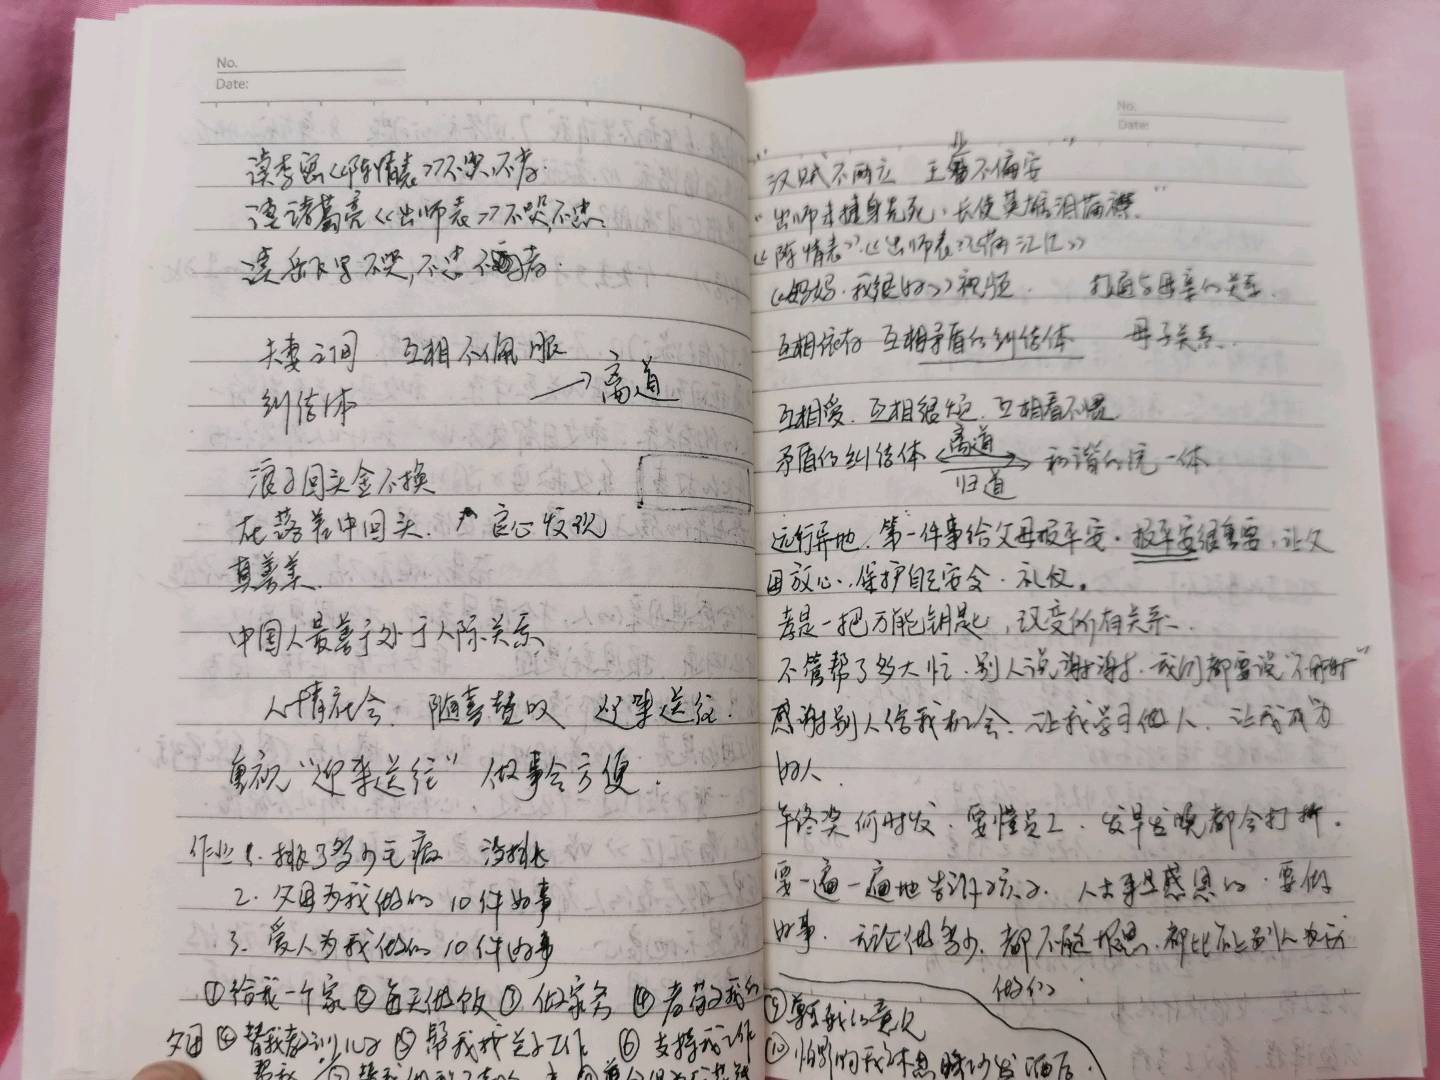 No.
Date:
读李密《陈情表》不哭,不孝.
读诸葛亮《出师表》不哭,不忠.
读岳飞 不哭,不忠不孝.
夫妻之间 互相不佩服
→ 离道
纠结体
浪子回头金不换
在落差中回头. 良心发现
真善美.
中国人最善于处于人际关系.
人情社会. 随喜赞叹 迎来送往.
重视“迎来送往” 做事会方便.
作业 1. 排了多少毛病
2. 父母为我做的10件好事
3. 爱人为我做的10件好事
①给我一个家 ②每天做饭 ③做家务 ④孝敬我的
父母 ④替我教训儿子 ⑤帮我找关于工作 ⑥支持我工作
No.
Date:
“汉贼不两立 王业不偏安”
“出师未捷身先死,长使英雄泪满襟.”
《陈情表》.《出师表》《满江红》
《妈妈.我很好》视频. 打通与母亲的关系.
互相依存 互相矛盾的纠结体 母子关系.
互相爱.互相很烦.互相看不惯
矛盾的纠结体 离道 归道 和谐的统一体
远行异地.第一件事给父母报平安.报平安很重要,让父
母放心.保护自己安全.礼仪。
孝是一把万能钥匙,改变所有关系.
不管帮了多大忙.别人说谢谢.我们都要说“不用谢”
感谢别人给我机会.让我学习做人.让我成为
好人.
年终奖何时发.要懂员工.发早发晚都会打折.
要一遍一遍地告诉孩子.人世事是感恩的.要做
好事.无论做多少.都不随报恩.都比不上别人为我
做的.
⑨尊重我的意见